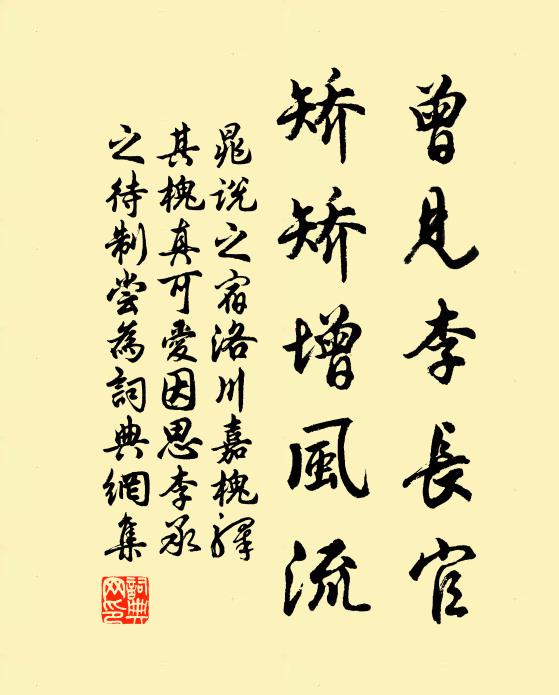 曾見李長官
矯矯增風流
晁説之宿洛川嘉槐驛
其槐真可愛因思李承
之待制嘗為詞典網集
詞典网印